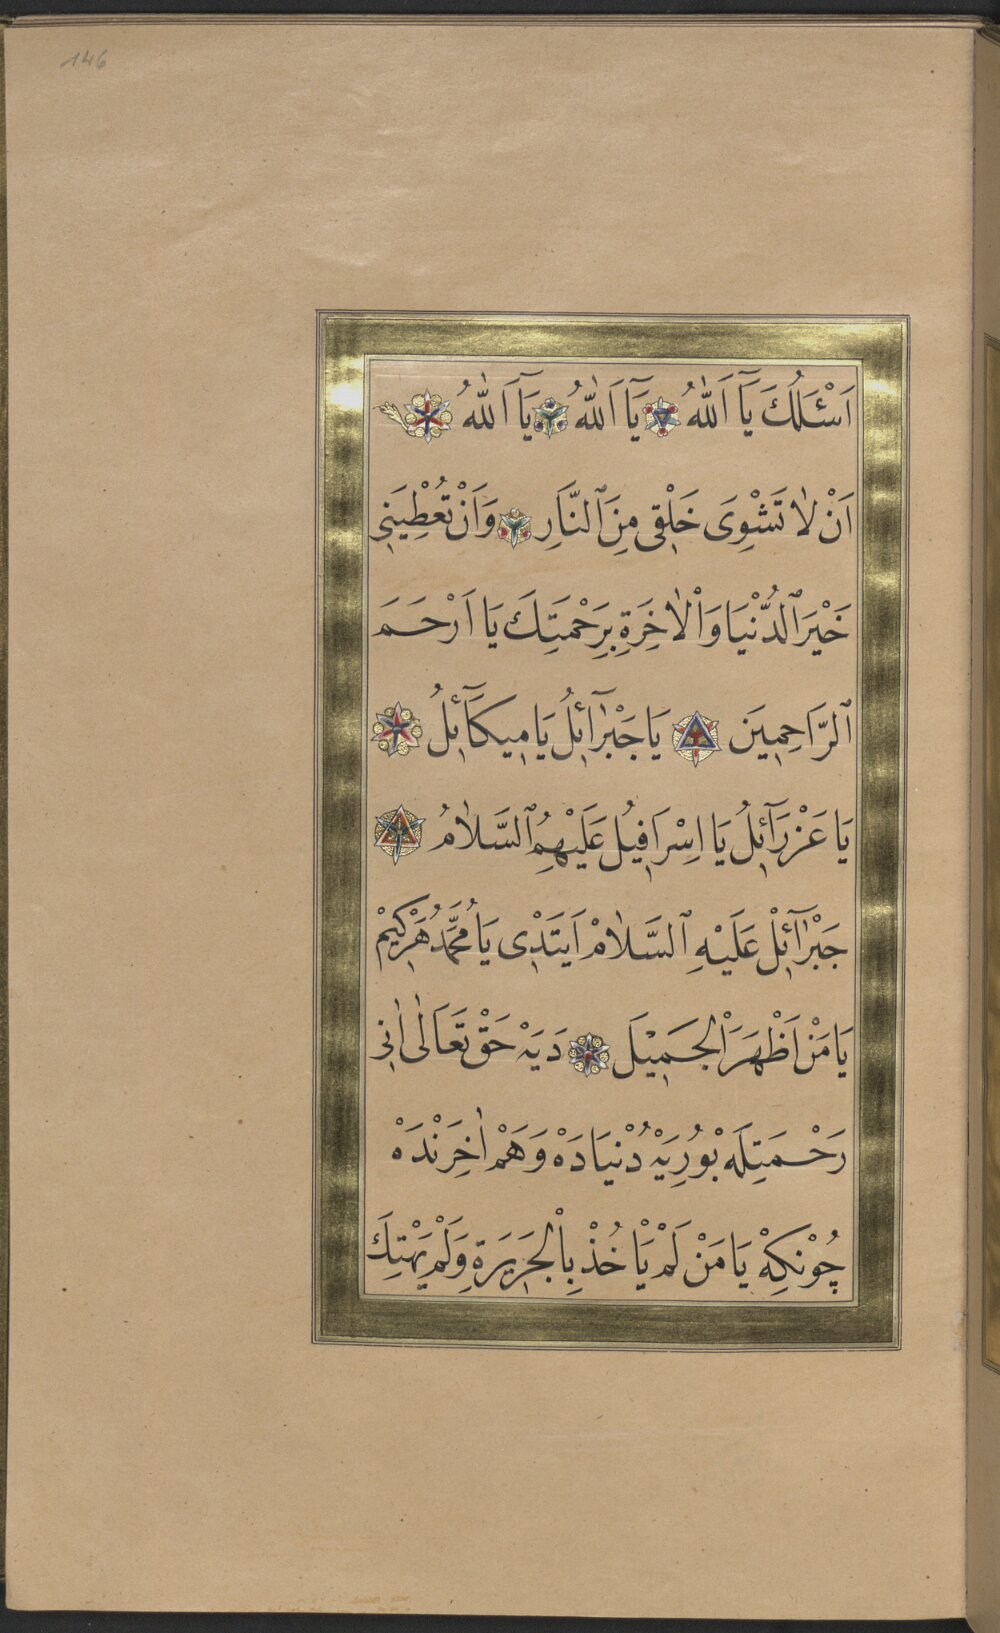 146
اَسْئَلُكَ يَآ اَللّٰهُ يَآ اَللّٰهُ يَآ اَللّٰهُ
اَنْ لَا تَشْوِىَ خَلْقِى مِنَ ٱلنَّارِ وَاَنْ تُعْطِيَنِى
خَيْرَ ٱلدُّنْيَا وَٱلْاٰخِرَةِ بِرَحْمَتِكَ يَا اَرْحَمَ
ٱلرَّاحِمِينَ يَا جَبْرَآئِلُ يَا مِيكَآئِلُ
يَا عَزْرَآئِلُ يَا اِسْرَافِيلُ عَلَيْهِمُ ٱلسَّلَامُ
جَبْرَآئِلْ عَلَيْهِ ٱلسَّلَامْ اَيَتَدْى يَا مُحَمَّدُ هَرْكِيمْ
يَا مَنْ اَظْهَرَ الْجَمِيْلَ دَيَهْ حَقْ تَعَالٰى اٰنِى
رَحْمَتِلَهْ بُورِيَهْ دُنْيَادَهْ وَهَمْ اٰخِرَنْدَهْ
چُوْنكِهْ يَا مَنْ لَمْ يَاْخُذْ بِالْجَرِيرَةِ وَلَمْ يَهْتِكَ